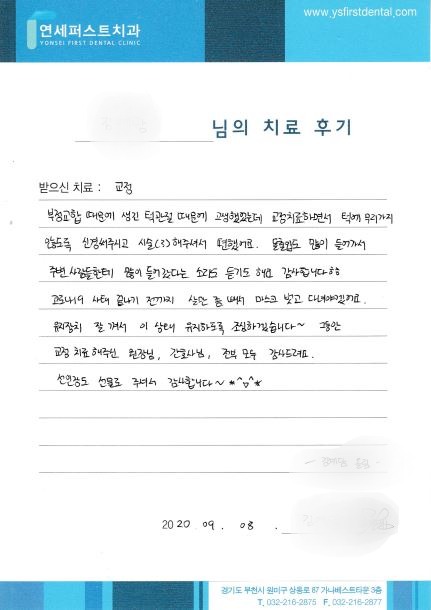 www.ysfirstdental.com
연세퍼스트치과
YONSEI FIRST DENTAL CLINIC
님의 치료 후기
받으신 치료 : 교정
부정교합 때문에 생긴 턱관절 때문에 고생했었는데 교정치료하면서 턱에 무리가지
않도록 신경써주시고 시술(?)해주셔서 편했어요. 돌출입도 많이 들어가서
주변 사람들한테 많이 들어갔다는 소리도 듣기도 해요 감사합니다ㅎㅎ
코로나19 사태 끝나기 전까지 살만 좀 빼서 마스크 벗고 다녀야겠어요.
유지장치 잘 껴서 이 상태 유지하도록 조심하겠습니다~ 그동안
교정 치료해주신 원장님, 간호사님, 전부 모두 감사드려요.
선인장도 선물로 주셔서 감사합니다~ *^o^*
2020 . 09 . 08 .
경기도 부천시 원미구 상동로 87 가나베스트타운 3층
T. 032-216-2875 F. 032-216-2877